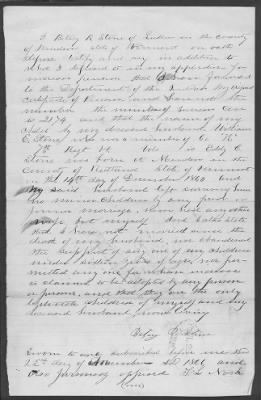 I Betsy R Stone of Ludlow in the County
of Windsor State of Vermont on oath
depose testify and say in addition to
what I deposed to in my application for
increase pension that I have forwarded
to the Department of the Interior my original
certificate of Pension and
number the number of Pension
to 2174 and that the name of my
Child by my deceased husband William
E Stone who was a member of Co
7th Regt Vt Vols is Eddy E
Stone was born at Mendon in the
County of Rutland State of Vermont
on the 14th day of December 1860 and
my said husband left surviving him
no minor children by any prior or
former marriage,
wife but myself and I also state
that I have not married since the
death of my husband, nor abandoned
the support of any one of his children
under sixteen years of age, nor per-
mitted any one for whom increase
is claimed to be adopted by any person
or persons, and that they are the only
legitimate children of myself and my
deceased husband from living
Betsy R Stone
Sworn to and subscribed before me this
day of November AD 1866 and